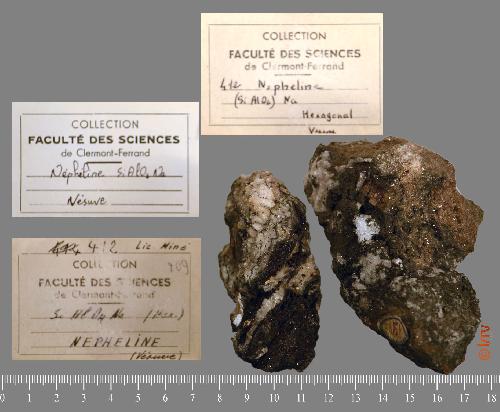 COLLECTION
FACULTÉ DES SCIENCES
de Clermont-Ferrand
412 Nepheline
(Si AlO4) Na
Hexagonal
Vésuve
COLLECTION
FACULTÉ DES SCIENCES
de Clermont-Ferrand
Népheline SiAlO4 Na
Vésuve
412 Liz Miné
COLLECTION
709
FACULTÉ DES SCIENCES
de Clermont-Ferrand
Si Al O4 Na (Hex.)
NEPHELINE
(Vésuve)
0 1 2 3 4 5 6 7 8 9 10 11 12 13 14 15 16 17 18